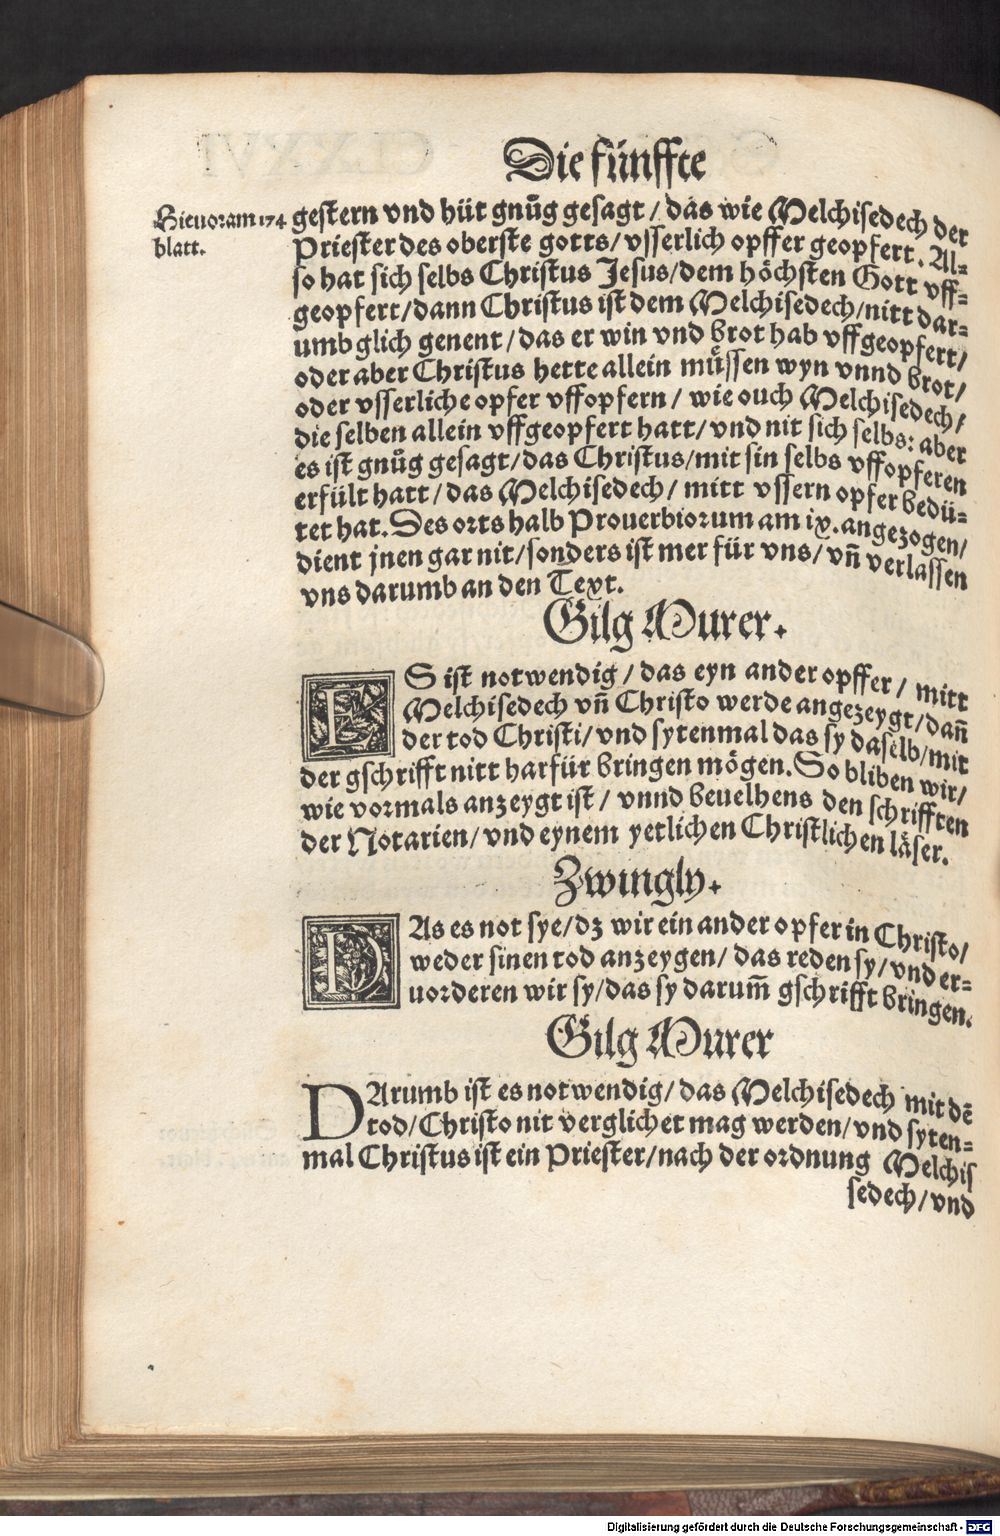 Die fünffte
Hieuoram 174
blatt.
gestern vnd hüt gnůg gesagt / das wie Melchisedech der
Priester des oberste gotts / vsserlich opffer geopfert. Al-
so hat sich selbs Christus Jesus / dem höchsten Gott vff-
geopfert / dann Christus ist dem Melchisedech / nitt dar-
umb glich genent / das er win vnd brot hab vffgeopfert /
oder aber Christus hette allein müssen wyn vnnd brot /
oder vsserliche opfer vffopfern / wie ouch Melchisedech /
die selben allein vffgeopfert hatt / vnd nit sich selbs: aber
es ist gnůg gesagt / das Christus / mit sin selbs vffopferen
erfült hatt / das Melchisedech / mitt vssern opfer bedü-
tet hat. Des orts halb Prouerbiorum am ix. angezogen /
dient jnen gar nit / sonders ist mer für vns / vñ verlassen
vns darumb an den Text.
Gilg Murer.
ES ist notwendig / das eyn ander opffer / mitt
Melchisedech vñ Christo werde angezeygt / dañ
der tod Christi / vnd sytenmal das sy daselb / mit
der gschrifft nitt harfür bringen mögen. So bliben wir /
wie vormals anzeygt ist / vnnd beuelhens den schrifften
der Notarien / vnd eynem yetlichen Christlichen läser.
Zwingly.
DAs es not sye / dz wir ein ander opfer in Christo /
weder sinen tod anzeygen / das reden sy / vnd er-
uorderen wir sy / das sy darum̃ gschrifft bringen.
Gilg Murer
DArumb ist es notwendig / das Melchisedech mit dē
tod / Christo nit verglichet mag werden / vnd syten-
mal Christus ist ein Priester / nach der ordnung Melchis
sedech / vnd
Digitalisierung gefördert durch die Deutsche Forschungsgemeinschaft - DFG